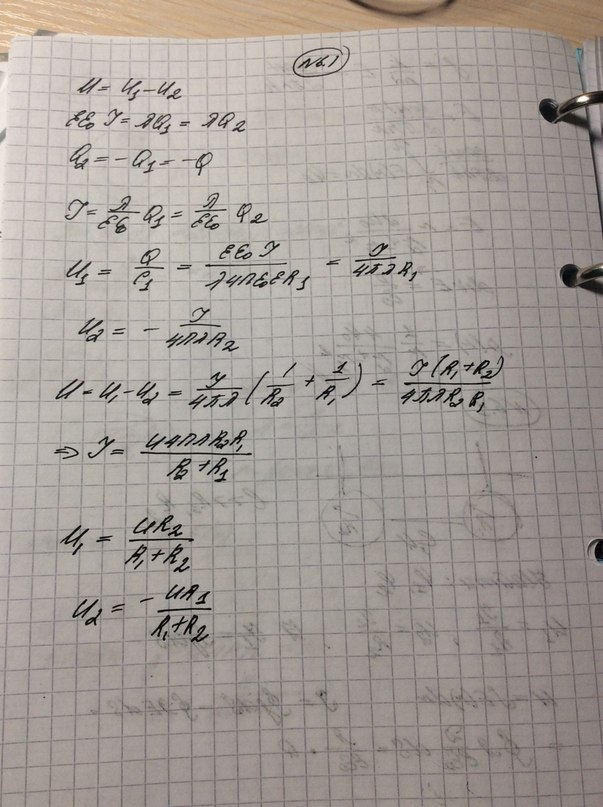 №6.1
U = U₁ - U₂
εε₀ I = λQ₁ = λQ₂
Q₂ = -Q₁ = -Q
I = λ/εε₀ Q₁ = λ/εε₀ Q₂
U₁ = Q/C₁ = εε₀ I/λ4πε₀εR₁ = I/4πλR₁
U₂ = - I/4πλR₂
U = U₁ - U₂ = I/4πλ (1/R₂ + 1/R₁) = I(R₁+R₂)/4πλR₂R₁
⇒ I = U4πλR₂R₁/R₂+R₁
U₁ = UR₂/R₁+R₂
U₂ = - UR₁/R₁+R₂